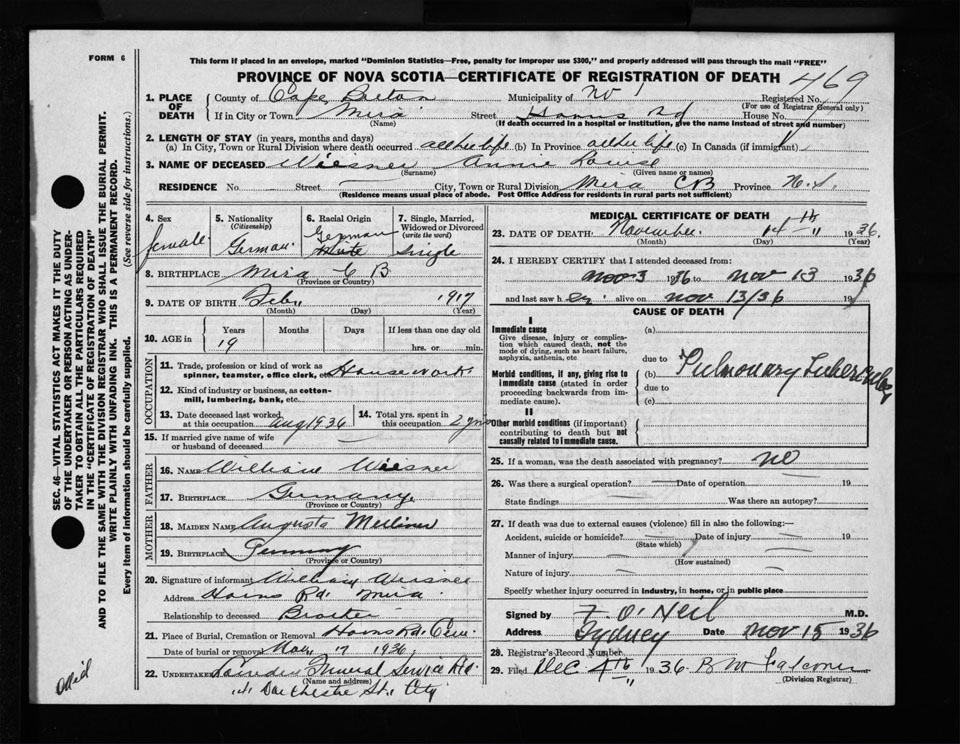 FORM 6
This form if placed in an envelope, marked "Dominion Statistics—Free, penalty for improper use $300," and properly addressed will pass through the mail "FREE"
PROVINCE OF NOVA SCOTIA—CERTIFICATE OF REGISTRATION OF DEATH
469
1. PLACE OF DEATH County of Cape Breton Municipality of No 1 Registered No. (For use of Registrar General only)
If in City or Town Mira (Name) Street Horns Rd House No.
(If death occurred in a hospital or institution, give the name instead of street and number)
2. LENGTH OF STAY (in years, months and days)
(a) In City, Town or Rural Division where death occurred all her life (b) In Province all her life (c) In Canada (if immigrant)
3. NAME OF DECEASED Wiesner Annie Louise
(Surname) (Given name or names)
RESIDENCE No. Street City, Town or Rural Division Mira CB Province N.S.
(Residence means usual place of abode. Post Office Address for residents in rural parts not sufficient)
SEC. 46—VITAL STATISTICS ACT MAKES IT THE DUTY
OF THE UNDERTAKER OR PERSON ACTING AS UNDER-
TAKER TO OBTAIN ALL THE PARTICULARS REQUIRED
IN THE "CERTIFICATE OF REGISTRATION OF DEATH"
AND TO FILE THE SAME WITH THE DIVISION REGISTRAR WHO SHALL ISSUE THE BURIAL PERMIT.
WRITE PLAINLY WITH UNFADING INK. THIS IS A PERMANENT RECORD.
Every item of information should be carefully supplied. (See reverse side for instructions.)
4. Sex female
5. Nationality (Citizenship) German
6. Racial Origin German White
7. Single, Married, Widowed or Divorced (write the word) Single
8. BIRTHPLACE Mira C B
(Province or Country)
9. DATE OF BIRTH Feb 1917
(Month) (Day) (Year)
10. AGE in Years Months Days If less than one day
19 hrs. or min.
OCCUPATION
11. Trade, profession or kind of work as spinner, teamster, office clerk, etc. House work
12. Kind of industry or business, as cotton-mill, lumbering, bank, etc.
13. Date deceased last worked at this occupation Aug 1936
14. Total yrs. spent in this occupation 2 yrs
15. If married give name of wife or husband of deceased
FATHER
16. NAME William Wiesner
17. BIRTHPLACE Germany
(Province or Country)
MOTHER
18. MAIDEN NAME Augusta
19. BIRTHPLACE Germany
(Province or Country)
20. Signature of informant William Wiesner
Address Horns Rd. Mira
Relationship to deceased Brother
21. Place of Burial, Cremation or Removal Horns Rd. Cem.
Date of burial or removal Nov 17 1936
22. UNDERTAKER Funeral Service Ltd.
(Name and address)
Dorchester St. City
MEDICAL CERTIFICATE OF DEATH
23. DATE OF DEATH November 14th 1936
(Month) (Day) (Year)
24. I HEREBY CERTIFY that I attended deceased from:
Nov 3 1936 to Nov 13 1936
and last saw her alive on Nov 13/36 19
CAUSE OF DEATH
I
Immediate cause
Give disease, injury or complication which caused death, not the mode of dying, such as heart failure, asphyxia, asthenia, etc
(a)
due to
Morbid conditions, if any, giving rise to immediate cause (stated in order proceeding backwards from immediate cause).
(b) Pulmonary Tuberculosis
due to
(c)
II
Other morbid conditions (if important) contributing to death but not causally related to immediate cause.
25. If a woman, was the death associated with pregnancy? no
26. Was there a surgical operation? Date of operation 19
State findings Was there an autopsy?
27. If death was due to external causes (violence) fill in also the following:—
Accident, suicide or homicide? Date of injury 19
(State which)
Manner of injury
(How sustained)
Nature of injury
Specify whether injury occurred in industry, in home, or in public place
Signed by F. O'Neil M.D.
Address Sydney Date Nov 15 1936
28. Registrar's Record Number
29. Filed Dec 4th 1936 B M Falconer
(Division Registrar)